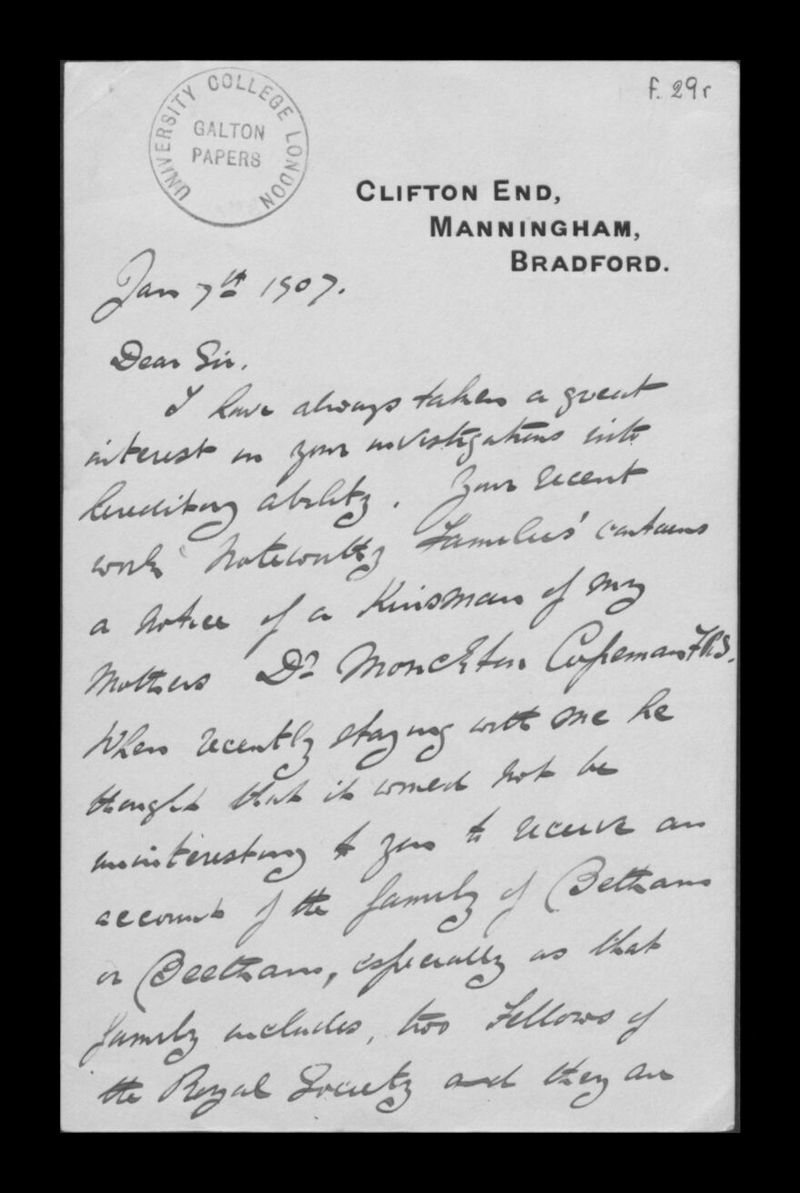 f. 29r
UNIVERSITY COLLEGE LONDON
GALTON
PAPERS
CLIFTON END,
MANNINGHAM,
BRADFORD.
Jan 7th 1907.
Dear Sir.
I have always taken a great
interest in your investigations into
hereditary ability. Your recent
work 'Noteworthy Families' contains
a notice of a Kinsman of my
Mothers Dr Monckton Copeman FRS.
When recently staying with me he
thought that it would not be
uninteresting to you to receive an
account of the family of Betham
or Beetham, especially as that
family includes, two Fellows of
the Royal Society and they are